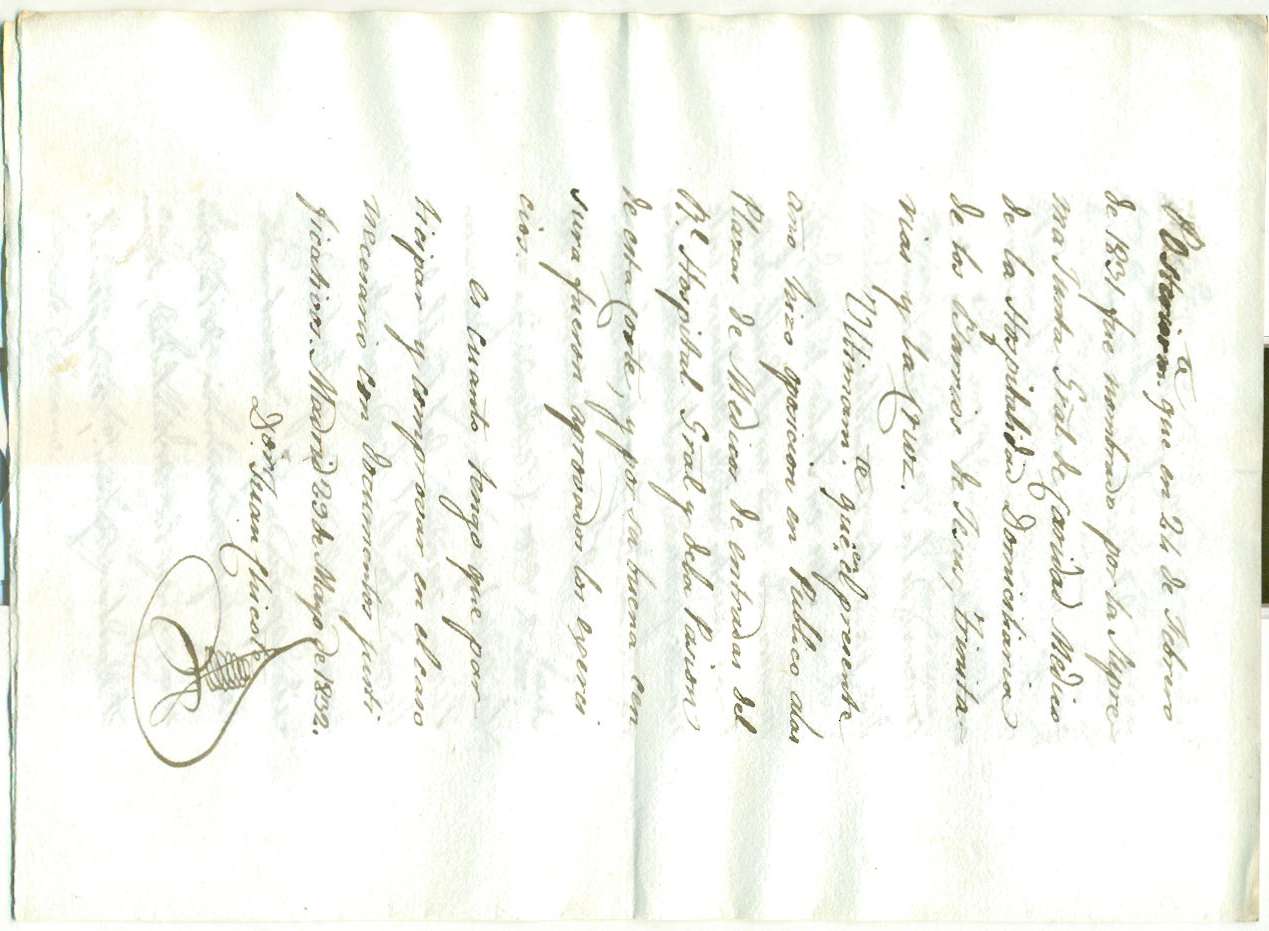 Posteriorm.te que en 24 de Febrero
de 1831 fue nombrado por la Supre
ma Junta Gral. de Caridad Medico
de la Hospitalidad Domiciliaria
de los Barrios de Jesus, Trinita-
rias y la Cruz.
Ultimam.te que el presente
año hizo oposicion en Publico a las
Plazas de Medicos de entradas del
Rl. Hospital Gral y de la Pasion
de esta Corte, y por su buena cen
sura fueron aprovados los egerci
cios.
Es cuanto tengo que par
ticipar y comprovar en el caso
necesario con documentos justi
ficativos. Madrid 23 de Mayo de 1832.
Don Juan Chico